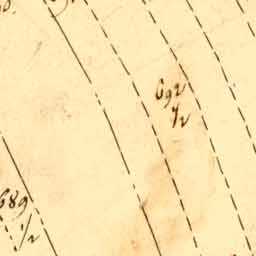 692
1/2
689
1/2